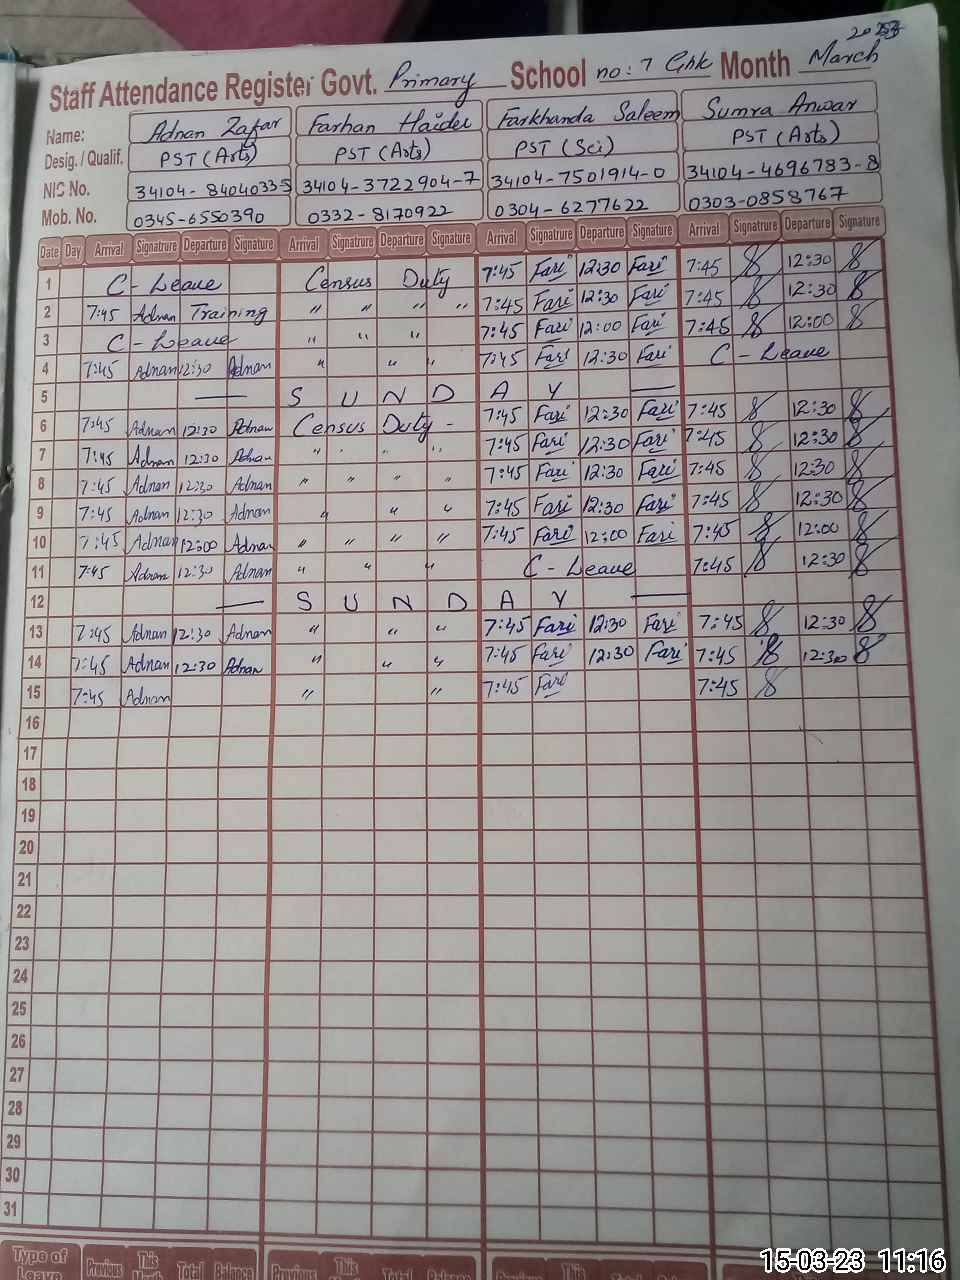 2023
Staff Attendance Register Govt. Primary School no: 7 Ghk Month March
Name: Adnan Zafar Farhan Haider Farkhanda Saleem Sumra Anwar
Desig. / Qualif. PST (Arts) PST (Arts) PST (Sci) PST (Arts)
NIC No. 34104-84040335 34104-3722904-7 34104-7501914-0 34104-4696783-8
Mob. No. 0345-6550390 0332-8170922 0304-6277622 0303-0858767
Date Day Arrival Signatrure Departure Signature Arrival Signatrure Departure Signature Arrival Signatrure Departure Signature Arrival Signatrure Departure Signature
1 C-Leave Census Duty 7:45 Fari 12:30 Fari 7:45 12:30
2 7:45 Adnan Training " " " " 7:45 Fari 12:30 Fari 7:45 12:30
3 C-Leave " " " 7:45 Fari 12:00 Fari 7:45 12:00
4 7:45 Adnan 12:30 Adnan " " " 7:45 Fari 12:30 Fari C-Leave
5 — S U N D A Y —
6 7:45 Adnan 12:30 Adnan Census Duty - 7:45 Fari 12:30 Fari 7:45 12:30
7 7:45 Adnan 12:30 Adnan " " " " 7:45 Fari 12:30 Fari 7:45 12:30
8 7:45 Adnan 12:30 Adnan " " " " 7:45 Fari 12:30 Fari 7:45 12:30
9 7:45 Adnan 12:30 Adnan " " " 7:45 Fari 12:30 Fari 7:45 12:30
10 7:45 Adnan 12:00 Adnan " " " " 7:45 Fari 12:00 Fari 7:45 12:00
11 7:45 Adnan 12:30 Adnan " " " C-Leave 7:45 12:30
12 — S U N D A Y —
13 7:45 Adnan 12:30 Adnan " " " 7:45 Fari 12:30 Fari 7:45 12:30
14 7:45 Adnan 12:30 Adnan " " " 7:45 Fari 12:30 Fari 7:45 12:30
15 7:45 Adnan " " 7:45 Fari 7:45
16
17
18
19
20
21
22
23
24
25
26
27
28
29
30
31
Type of Leave Previous This Total Balance Previous This Total Balance Previous This
15-03-23 11:16